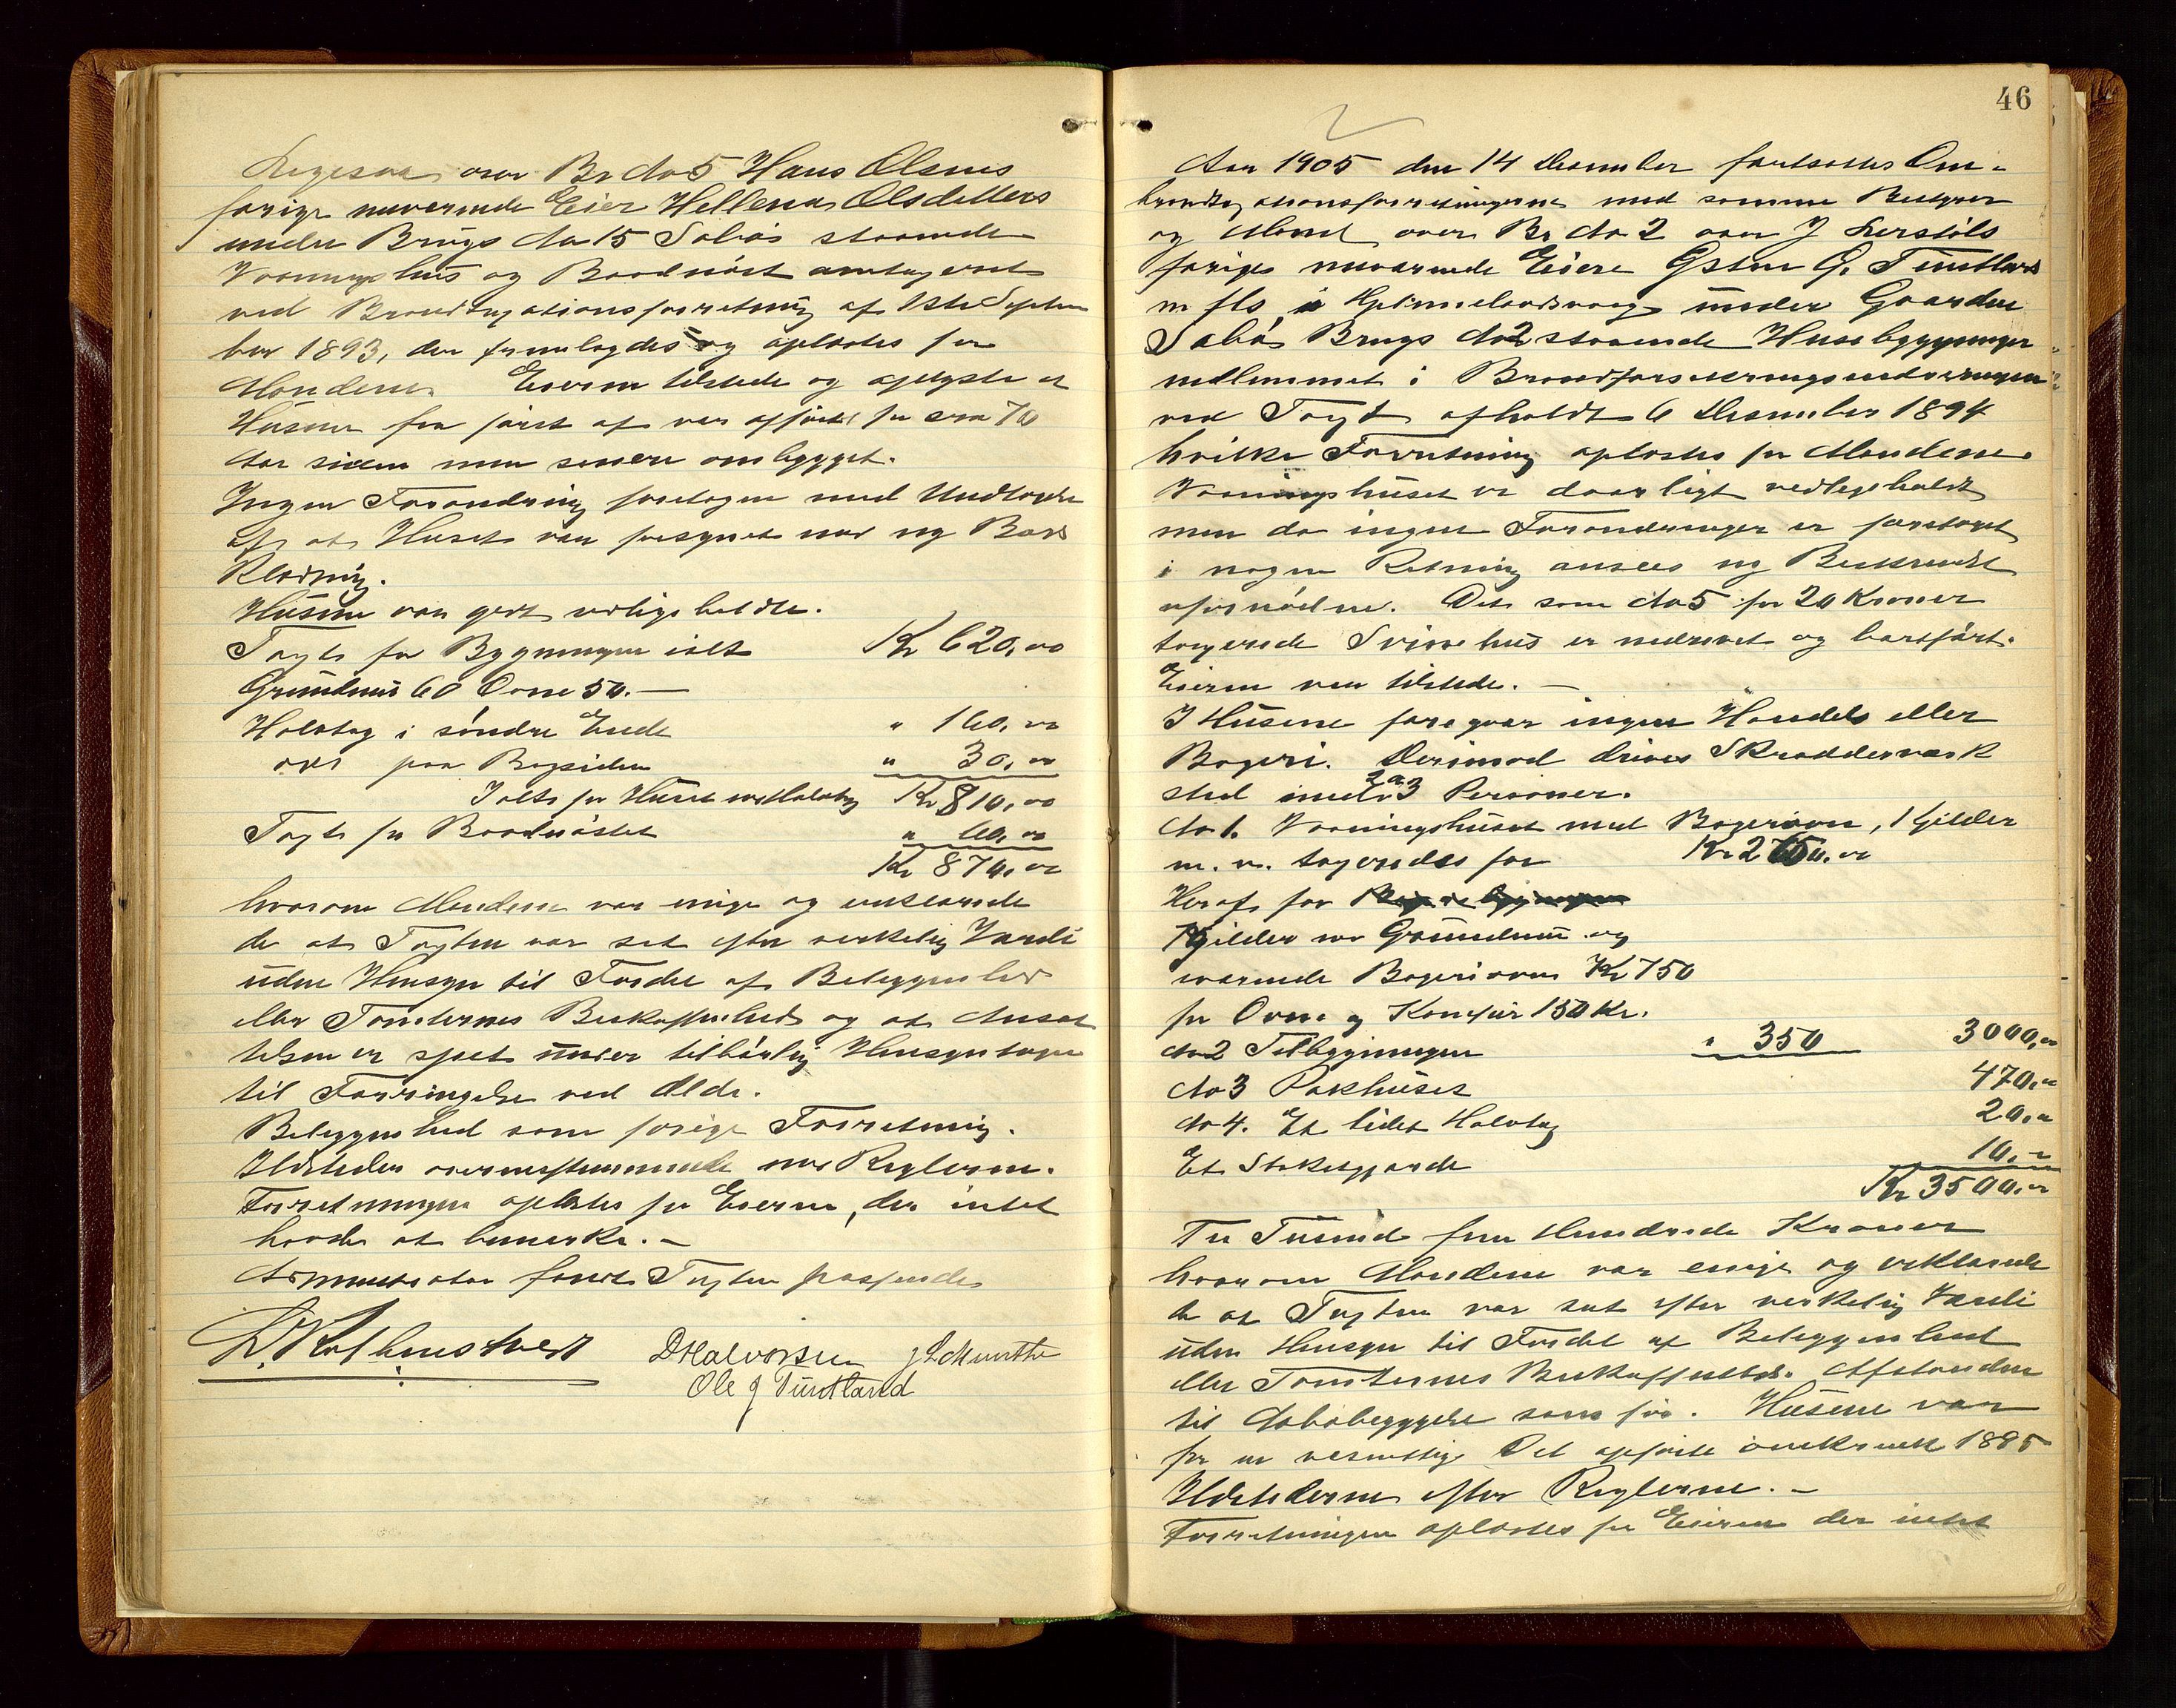 Ligesaa over Br No 5 Hans Olsens
forige nuværende Eier Hellena Olsdatters
under Brugs No 15 Sabø staaende
Vaaningshus og Baadnøst antageret
ved Brandtaxationsforretning af 1ste Septem
ber 1893, der fremlagdes og oplæstes for
Mændene. Eieren tilstede og oplyste at
Husene fra først af var opført for cra 70
Aar siden men senere ombygget.
Ingen Forandring foretagen med Undtagelse
af at Huset var forsynet med ny Bord
Klædning.
Husene var godt vedligeholdte.
Taxt for Bygningen ialt Kr 620,00
Grundmur 60 Ovne 50.—
Halvtag i søndre Ende " 160,00
do paa Bagsiden " 30,00
Ialt for Huset m Halvtag Kr 810,00
Taxt for Baadnøstet " 60,00
Kr 870,00
hvorom Mændene var enige og erklærede
de at Taxten var sat efter virkelig Værdi
uden Hensyn til Fordel af Beliggenhed
eller Tomternes Beskaffenhed og at Ansæt
telsen er skeet under tilbørlig Hensyntagen
til Forringelse ved Ælde.
Beliggenhed som forige Forretning.
Ildsteder overensstemmende med Reglerne.
Forretningen oplæstes for Eieren, der intet
havde at bemerke.—
Administrator fandt Taxten passende
D Halvorsen J L Munthe
Ole J Tuntland
46
Aar 1905 den 14 Desember fortsattes Om-
brandtaxationsforretningerne med samme Bestyrer
og Mænd over Br No 2 over J
forige nuværende Eiere Gsten G. Tuntland
m fls i Hjelmelandsvaag under Gaarden
Sabø Brugs No 2 staaende Husebygninger
indlemmet i Brandforsikringsindretningen
ved Taxt afholdt 6 Desember 1894
hvilken Forretning oplæstes for Mændene.
Vaaningshuset er daarligt vedligeholdt
men da ingen Forandringer er foretaget
i nogen Retning ansees ny Beskrivelse
ufornøden. Det som No 5 for 20 Kroner
taxerede Svinehus er nedrevet og bortført.
Eieren var tilstede.—
I Husene foregaar ingen Handel eller
Bageri. Derimod drives Skrædderværk
sted med 2 a 3 Personer.
No 1. Vaaningshuset med Bageriovn, 1 Kjelder
m. v. taxeredes for Kr 2650,00
Heraf for
Kjelder m Grundmur og
værende Bageriovn Kr 750
for Ovne og Komfur 150 Kr.
No 2 Tilbygningen " 350 3000,00
No 3 Pakhuset 470,00
No 4. Et lidet Halvtag 20,00
Et Stakitgjærde 10,00
Kr 3500,00
Tre Tusinde fem Hundrede Kroner
hvorom Mændene var enige og erklærede
de at Taxten var sat efter virkelig Værdi
uden Hensyn til Fordel af Beliggenhed
eller Tomternes Beskaffenhed. Afstanden
til Nabobebyggelse som før. Husene var
for en væsentlig Del opførte omkrendt 1885
Ildstederne efter Reglerne.—
Forretningen oplæstes for Eieren der intet